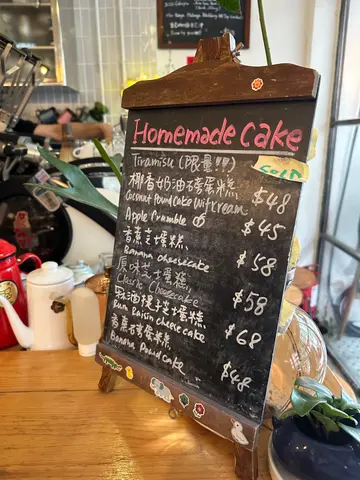 Homemade Cake
Tiramisu (限量!!)
SOLD
椰香奶油磅蛋糕
Coconut Pound Cake wif cream $48
Apple Crumble $45
香蕉芝士蛋糕
Banana cheesecake $58
原味芝士蛋糕
Classic Cheesecake $58
冧酒提子芝士蛋糕
Rum Raisin cheese cake $68
香蕉磅蛋糕
Banana Pound cake $48